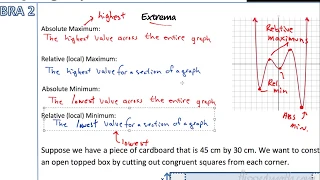 BRA 2
highest
Extrema
Absolute Maximum:
The highest value across the entire graph
Relative (local) Maximum:
The highest value for a section of a graph
Absolute Minimum:
The lowest value across the entire graph
Relative (local) Minimum:
The lowest value for a section of a graph
lowest
Relative
maximums
Rel.
min
Abs
min.
Suppose we have a piece of cardboard that is 45 cm by 30 cm. We want to const
an open topped box by cutting out congruent squares from each corner.